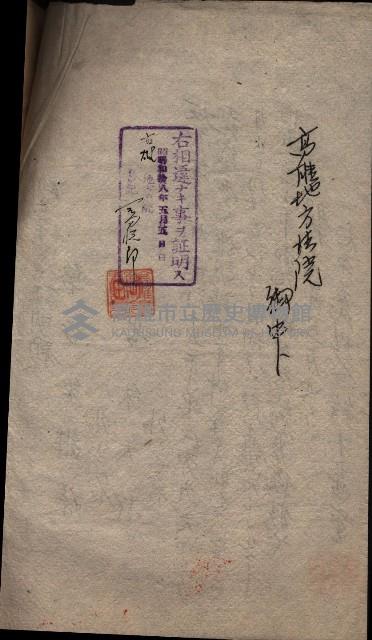 高雄地方法院
御中
右相違ナキ事ヲ証明ス
昭和拾八年五月五日
高雄
高雄市立歷史博物館
KAOHSIUNG MUSEUM OF HISTORY